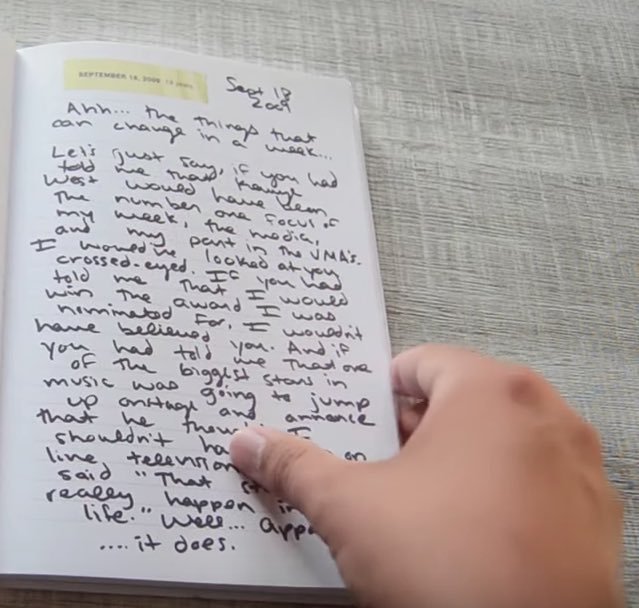 SEPTEMBER 18, 2009
Sept 18
2009
Ahh... the things that
can change in a week...
Let's just say, if you had
told me that Kanye
West would have been
The number one focus of
my week, the media,
and my part in the VMA's.
I would've looked at you
crossed-eyed. If you had
told me that I would
win the award I was
nominated for, I wouldn't
have believed you. And if
you had told me that one
of the biggest stars in
music was going to jump
up onstage and announce
that he
shouldn't on
live television
said "That
really happen in
life." Well...
.... it does.